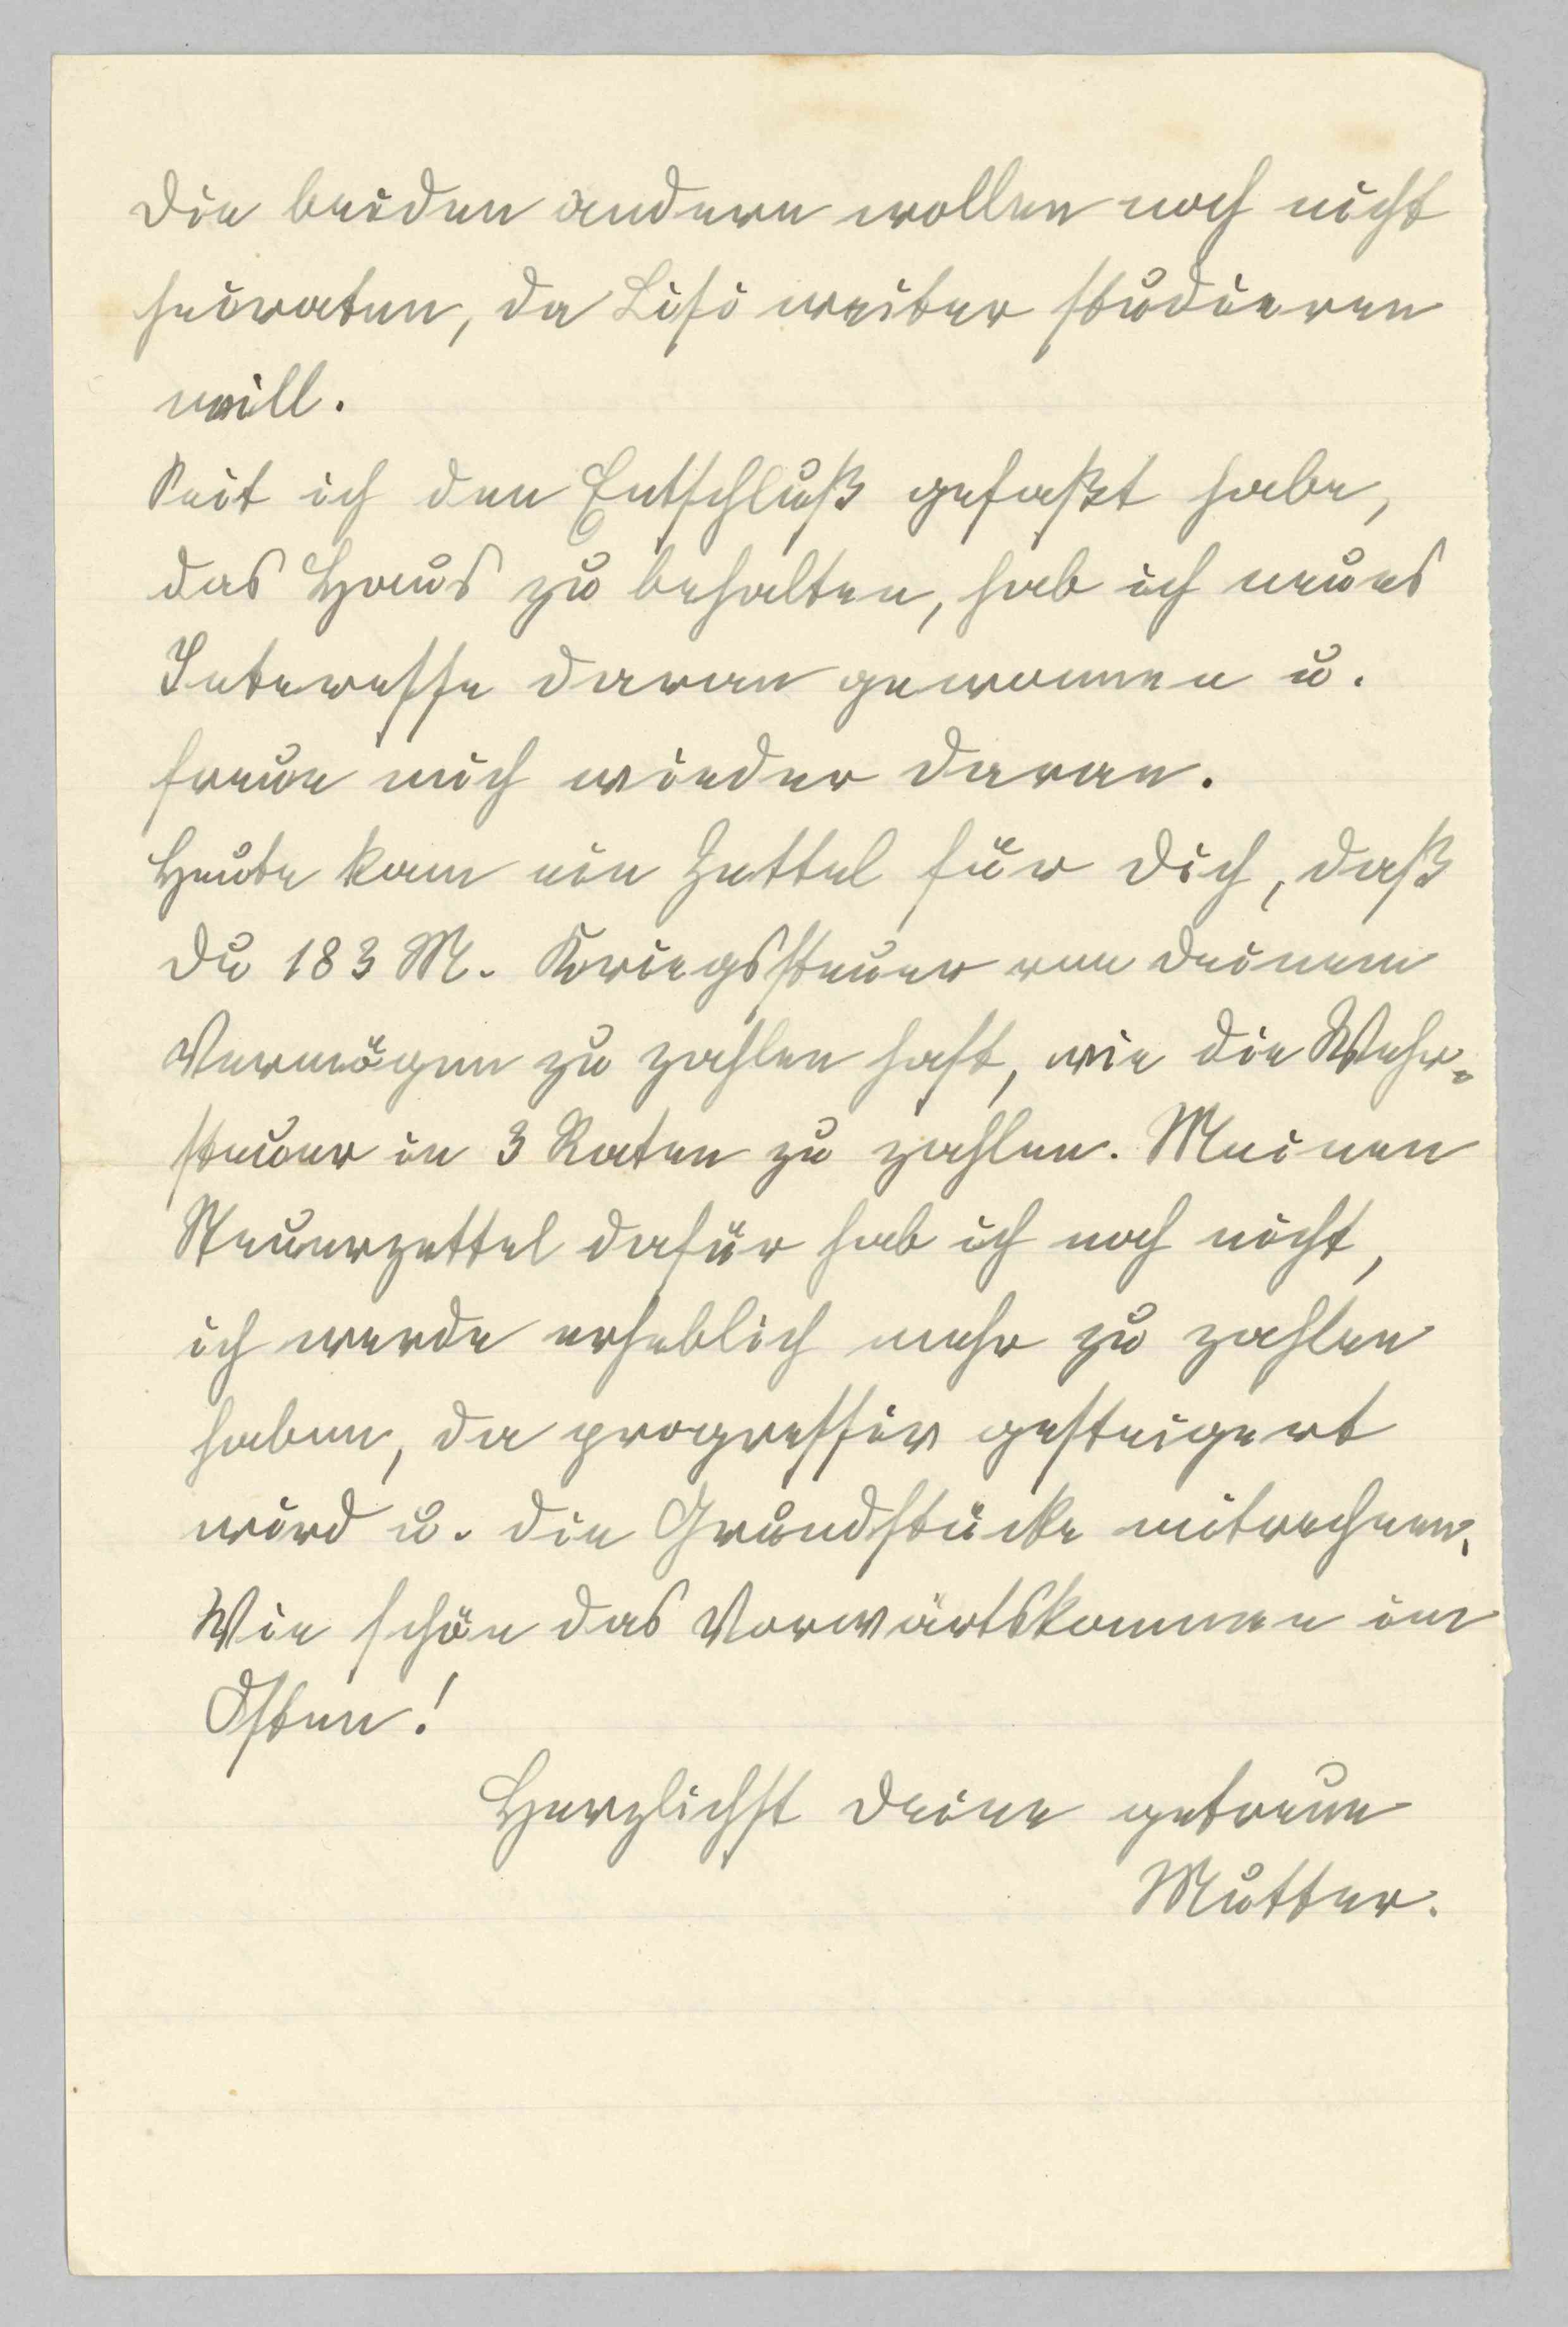 Die beiden andern wollen noch nicht
heiraten, da Lisi weiter studieren
will.
Seit ich den Entschluß gefaßt habe,
das Haus zu behalten, hab ich neues
Interesse daran gewonnen u.
freue mich wieder daran.
Heute kam ein Zettel für Dich, daß
Du 183 M. Kriegssteuer von Deinem
Vermögen zu zahlen hast, wie die Wehr-
steuer in 3 Raten zu zahlen. Meinen
Steuerzettel dafür hab ich noch nicht,
ich werde erheblich mehr zu zahlen
haben, da progressiv gesteigert
wird u. die Grundstücke mitrechnen.
Wie schön das Vorwärtskommen im
Osten!
Herzlichst Deine getreue
Mutter.